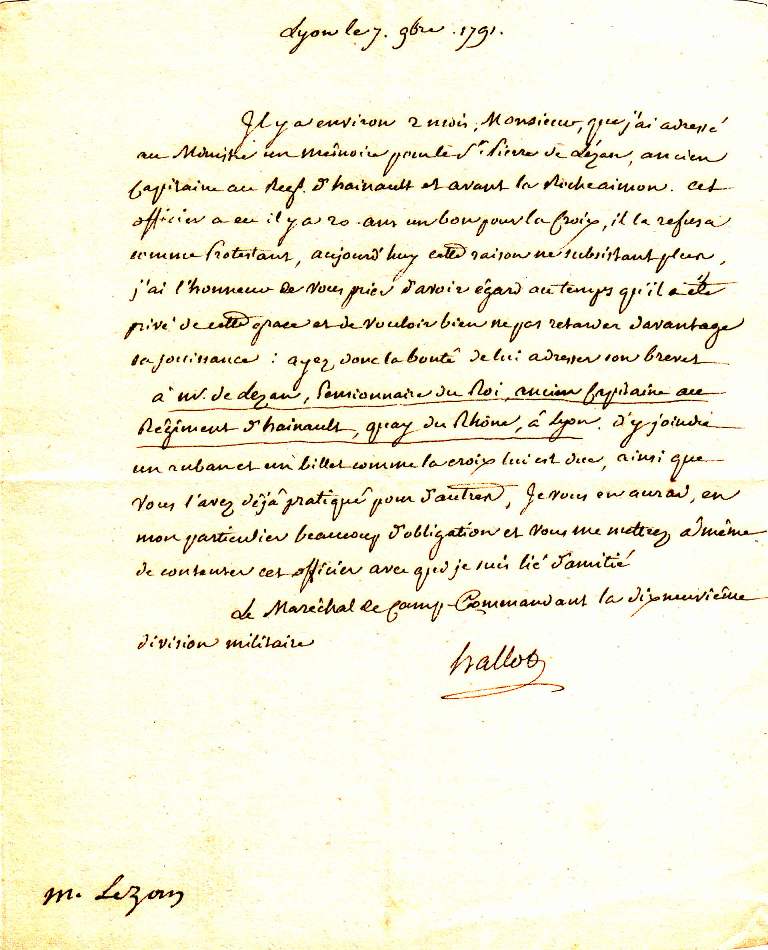 Lyon le 7. 9bre .1791.
Il y a environ 2 mois, Monsieur, que j'ai adressé
au Ministre un mémoire pour le Sr. Pierre de Lézan, ancien
Capitaine au Regt. d'hainault et avant la Rocheaimon. cet
officier a eu il y a 20 ans un bon pour la Croix, il la refusa
comme Protestant, aujourd'huy cette raison ne subsistant plus,
j'ai l'honneur de vous prier d'avoir égard au temps qu'il a été
privé de cette grace et de vouloir bien ne pas retarder davantage
sa jouissance : ayez donc la bonté de lui adresser son brevet
à mr. de Lezan, Pensionnaire du Roi, ancien Capitaine au
Régiment d'hainault, quay du Rhône, à Lyon. d'y joindre
un ruban et un billet comme la croix lui est due, ainsi que
vous l'avez déjà pratiqué pour d'autres, Je vous en aurai, en
mon particulier beaucoup d'obligation et vous me mettrez à même
de contenter cet officier avec qui je suis lié d'amitié
Le Maréchal de Camp Commandant la dixneuvième
division militaire
hallot
m. Lezan